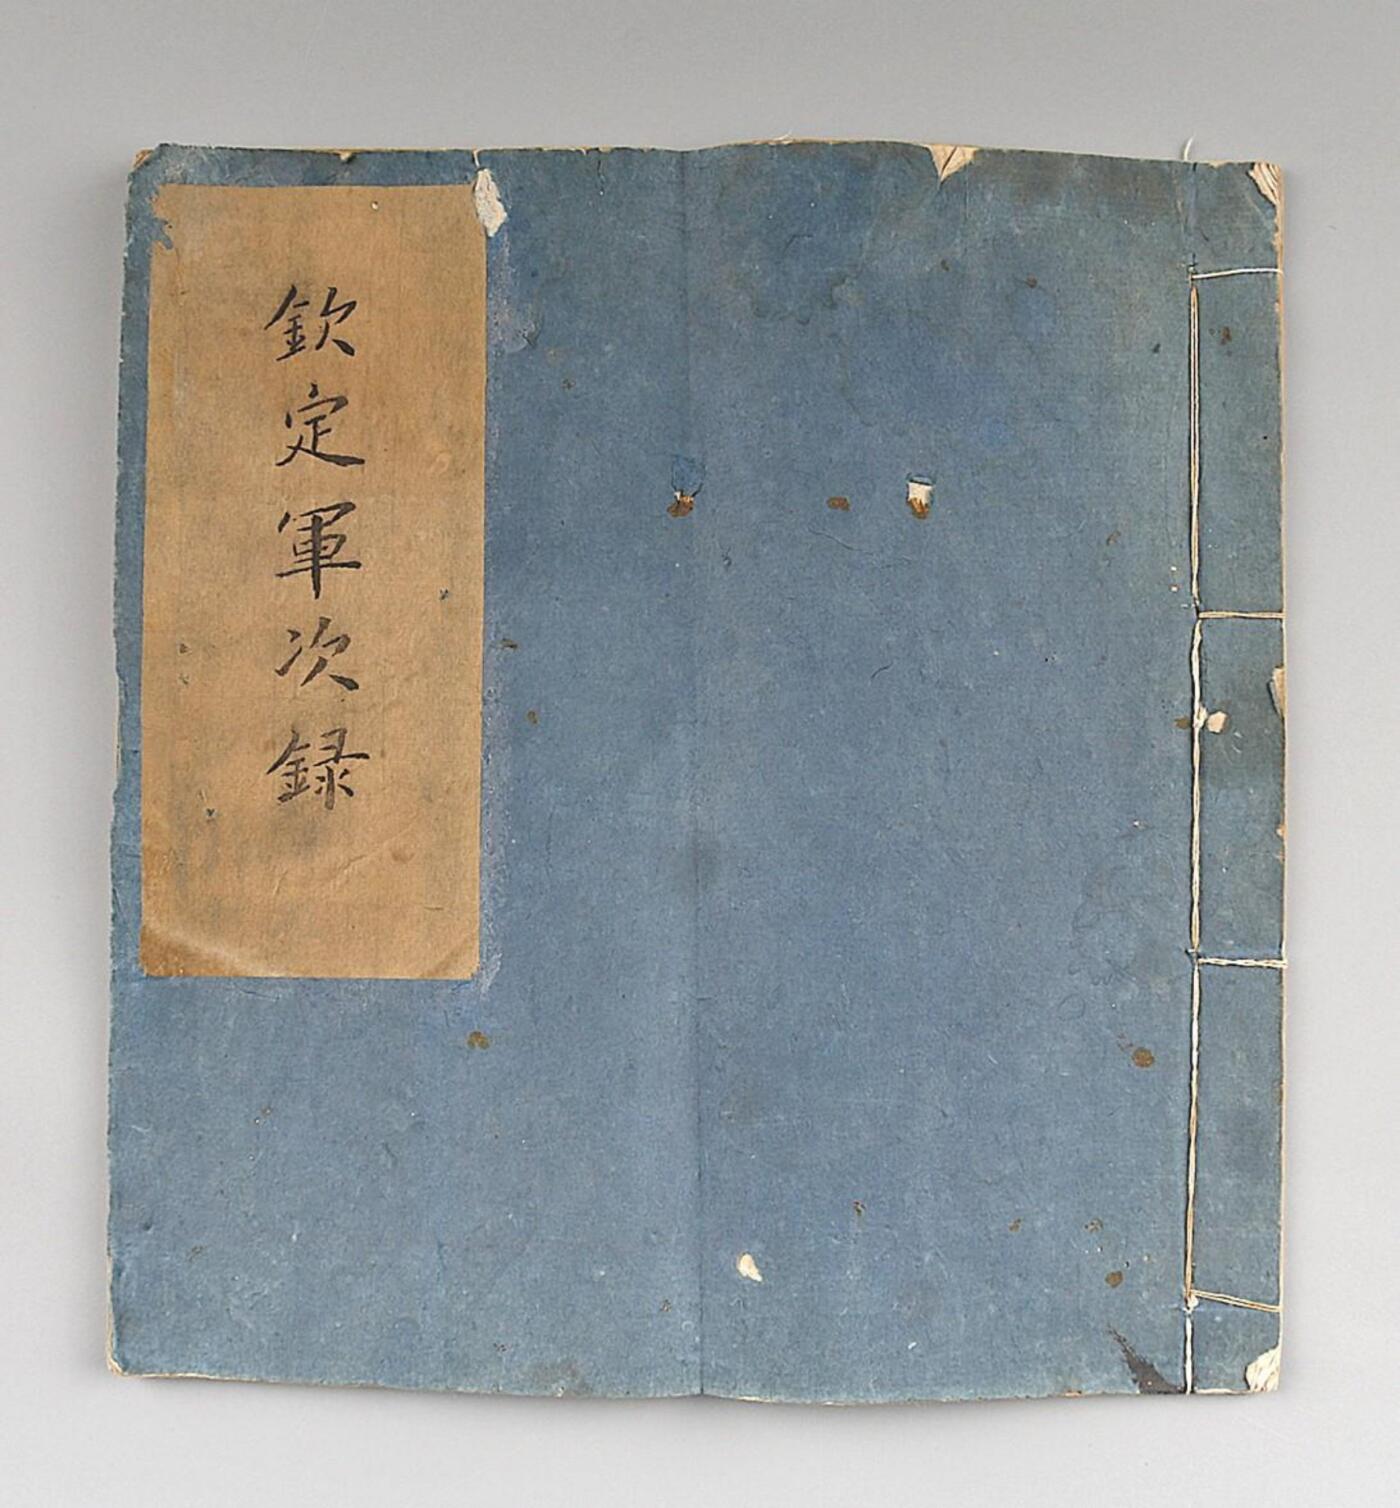 欽定軍次録